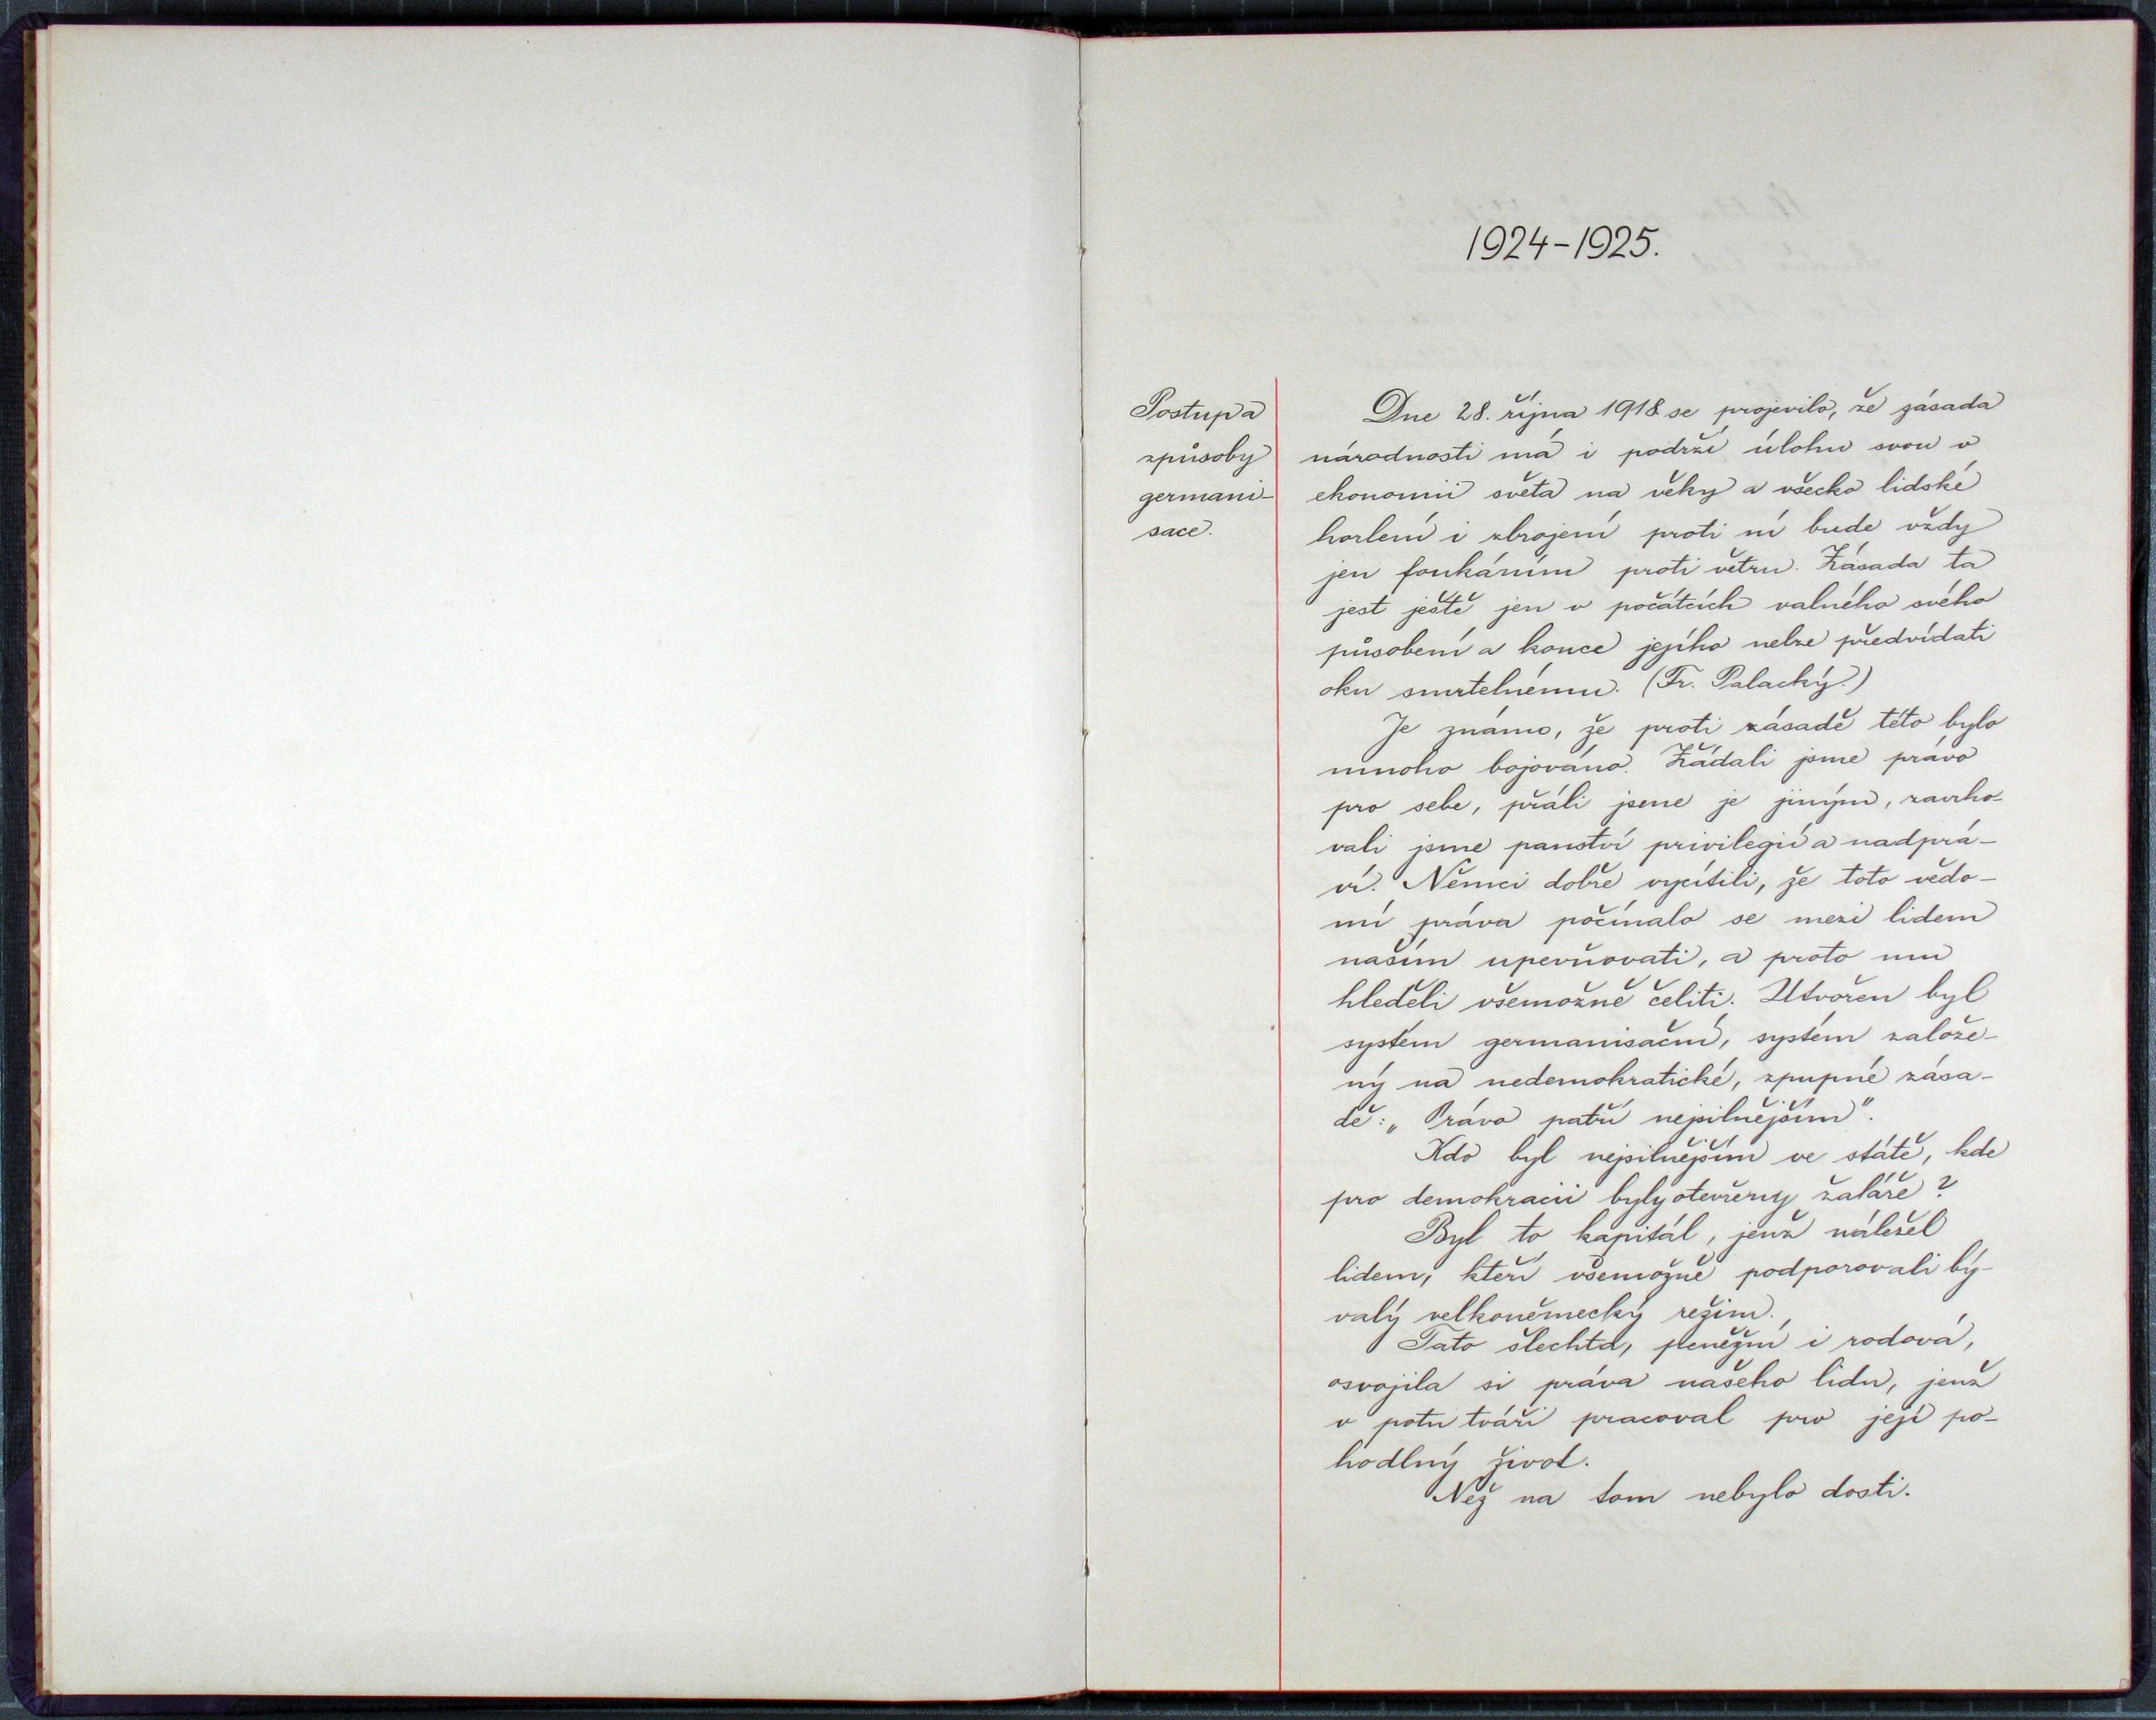 1924-1925.
Postup a
způsoby
germani-
sace.
Dne 28. října 1918 se projevilo, že zásada
národnosti má i podrží úlohu svou v
ekonomii světa na věky a všecko lidské
horlení i zbrojení proti ní bude vždy
jen foukáním proti větru. Zásada ta
jest ještě jen v počátcích valného svého
působení a konce jejího nelze předvídati
oku smrtelnému. (Fr. Palacký.)
Je známo, že proti zásadě této bylo
mnoho bojováno. Žádali jsme právo
pro sebe, přáli jsme je jiným, zavrho-
vali jsme panství privilegií a nadprá-
ví. Němci dobře vycítili, že toto vědo-
mí práva počínalo se mezi lidem
naším upevňovati, a proto mu
hleděli všemožně čeliti. Utvořen byl
systém germanisační, systém založe-
ný na nedemokratické, zpupné zása-
dě: „Právo patří nejsilnějším".
Kdo byl nejsilnějším ve státě, kde
pro demokracii byly otevřeny žaláře?
Byl to kapitál, jenž náležel
lidem, kteří všemožně podporovali bý-
valý velkoněmecký režim.
Tato šlechta, peněžní i rodová,
osvojila si práva našeho lidu, jenž
v potu tváři pracoval pro její po-
hodlný život.
Než na tom nebylo dosti.